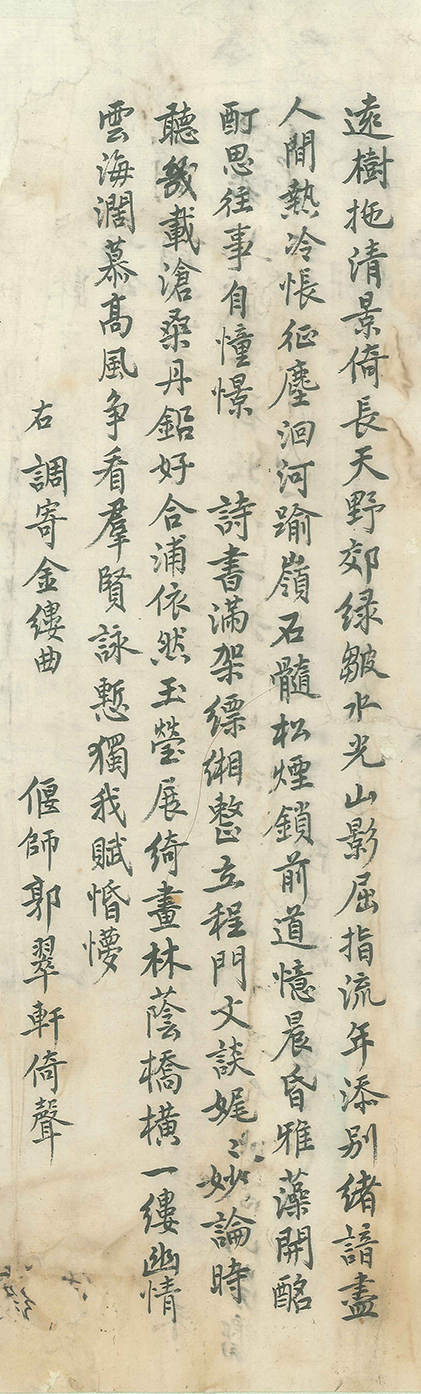 遠樹拖清景倚長天野郊绿皺水光山影屈指流年添别緒諳盡
人間熱冷悵征塵洄河踰嶺石髓松煙鎖前道憶晨昏雅藻開酩
酊思往事自憧憬　詩書滿架縹緗整立程門文談娓〻妙論時
聽幾載滄桑丹鉛好合浦依然玉瑩展綺畫林蔭橋横一縷幽情
雲海濶慕高風争看羣賢詠慙獨我賦惛懜
右調寄金縷曲　偃師郭翠軒倚聲